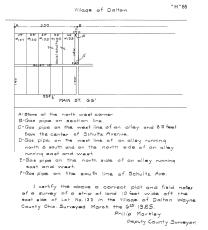 "H"88
Village of Dalton
A
230
B
MAIN ST. 66'
A-Stone at the north west corner
B-Gas pipe on section line
C-Gas pipe on the west line of an alley and
from the center of Schultz Avenue.
D-Gas pipe on the west line of an alley running
north & south and on the north side of an alley
running east and west
E-Gas pipe on the north side of an alley running
east and west.
F-Gas pipe on the south line of Schultz Ave.
I certify the above a correct plat and field notes
of a survey of a strip of land 10 feet wide off the
east side of Lot No. 133 in the Village of Dalton Wayne
County Ohio Surveyed March the 9th 1885.
Philip Markley
Deputy County Surveyor